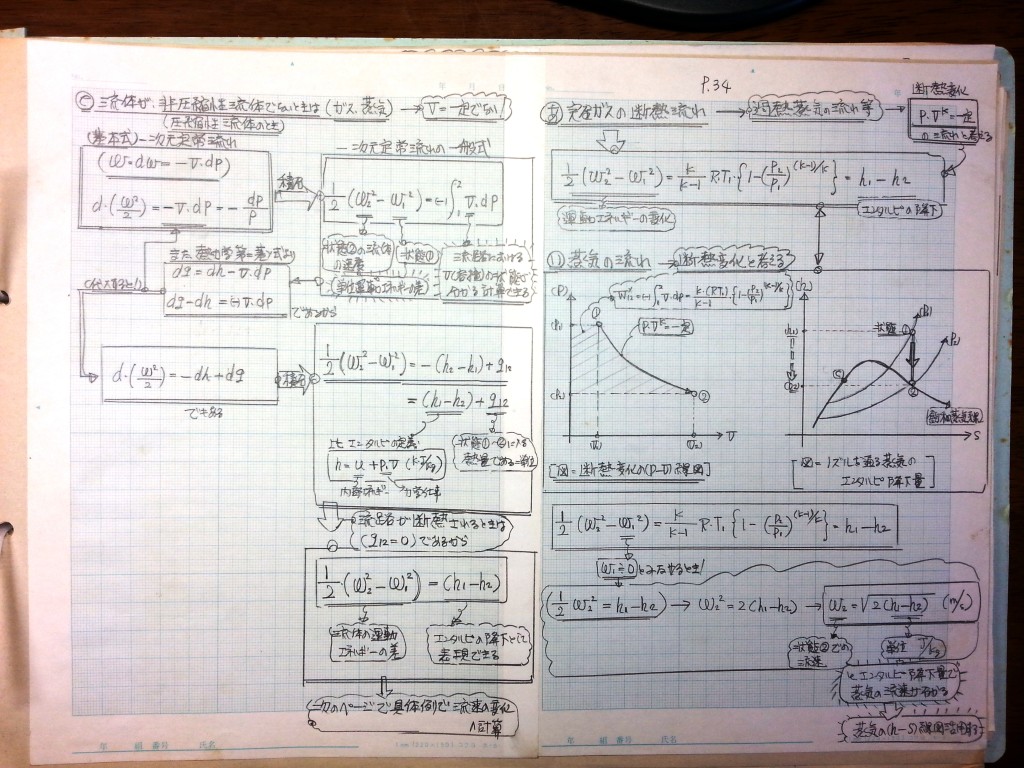 Ⓒ 流体が、非圧縮性流体でないときは (ガス、蒸気) → V=一定でない!
(圧縮性流体のとき)
(基本式) 一次元定常流れ
(w・dw = -v・dp)
d・(w²/2) = -v・dp = -dp/ρ
積分
一次元定常流れの一般式
1/2 (w₂² - w₁²) = (-) ∫₁² v・dp
状態②の流体の速度
状態①
(単位運動エネルギーの差)
流路における
v(容積)の状態で
わかる計算できる
また、熱力学第一基礎式より
dq = dh - v・dp
dq - dh = (-) v・dp
であるから
代入すると
d・(w²/2) = -dh + dq
できある
積分
1/2 (w₂² - w₁²) = -(h₂ - h₁) + q₁₂
= (h₁ - h₂) + q₁₂
比エンタルピの定義
h = u + p・v (kJ/kg)
内部エネルギー
状態①〜②に入る
熱量である
流路が断熱されるときは
(q₁₂ = 0) であるから
1/2 (w₂² - w₁²) = (h₁ - h₂)
流体の運動
エネルギーの差
エンタルピの降下として
表現できる
次のページで具体例で流速の変化
計算
年 組 番号 氏名
P.34
あ 完全ガスの断熱流れ → 過熱蒸気の流れ等
断熱変化
P・V^K = 一定
の流れと考える
1/2 (w₂² - w₁²) = K/(K-1) R・T₁・{1-(P₂/P₁)^((K-1)/K)} = h₁ - h₂
運動エネルギーの変化
エンタルピの降下
(い) 蒸気の流れ → 断熱変化と考える
(P)
P・V^K = 一定
(P₁)
(P₂)
①
②
(V₁)
(V₂)
V
[図=断熱変化の(P-V)線図]
(h)
(h₁)
(h₂)
状態①
(P₁)
P₂
②
飽和蒸気線
S
[図=ノズルを通る蒸気の
エンタルピ降下量]
1/2 (w₂² - w₁²) = K/(K-1) R・T₁ {1-(P₂/P₁)^((K-1)/K)} = h₁ - h₂
w₁≒0 とみなせるとき!
(1/2 w₂² = h₁ - h₂) → w₂² = 2(h₁ - h₂) → w₂ = √2(h₁ - h₂) (m/s)
状態②での
流速
単位 J/kg
比エンタルピ降下量で
蒸気の流速がわかる
蒸気の(h-S)線図活用する
年 組 番号 氏名